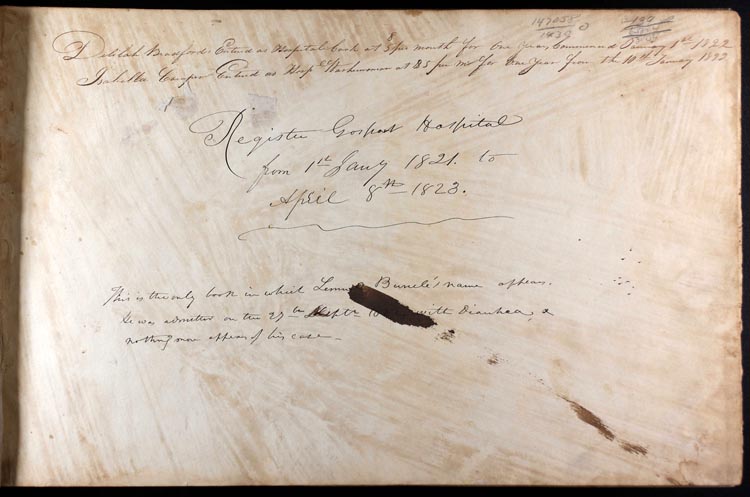 147058
1439
Delilah Bradford Entered as Hospital Cook at $5 per month for One Year, Commenced January 1st 1822
Isabella Cooper Entered as Hosp. Washwoman at $5 per mo for One Year from the 10th January 1822
Register Gosport Hospital
from 1st Jany 1821. to
April 8th 1823.
This is the only book in which Burrele's name appears.
He was admitted on the 27th Septr with Diarrhea, &
nothing more appears of his case.